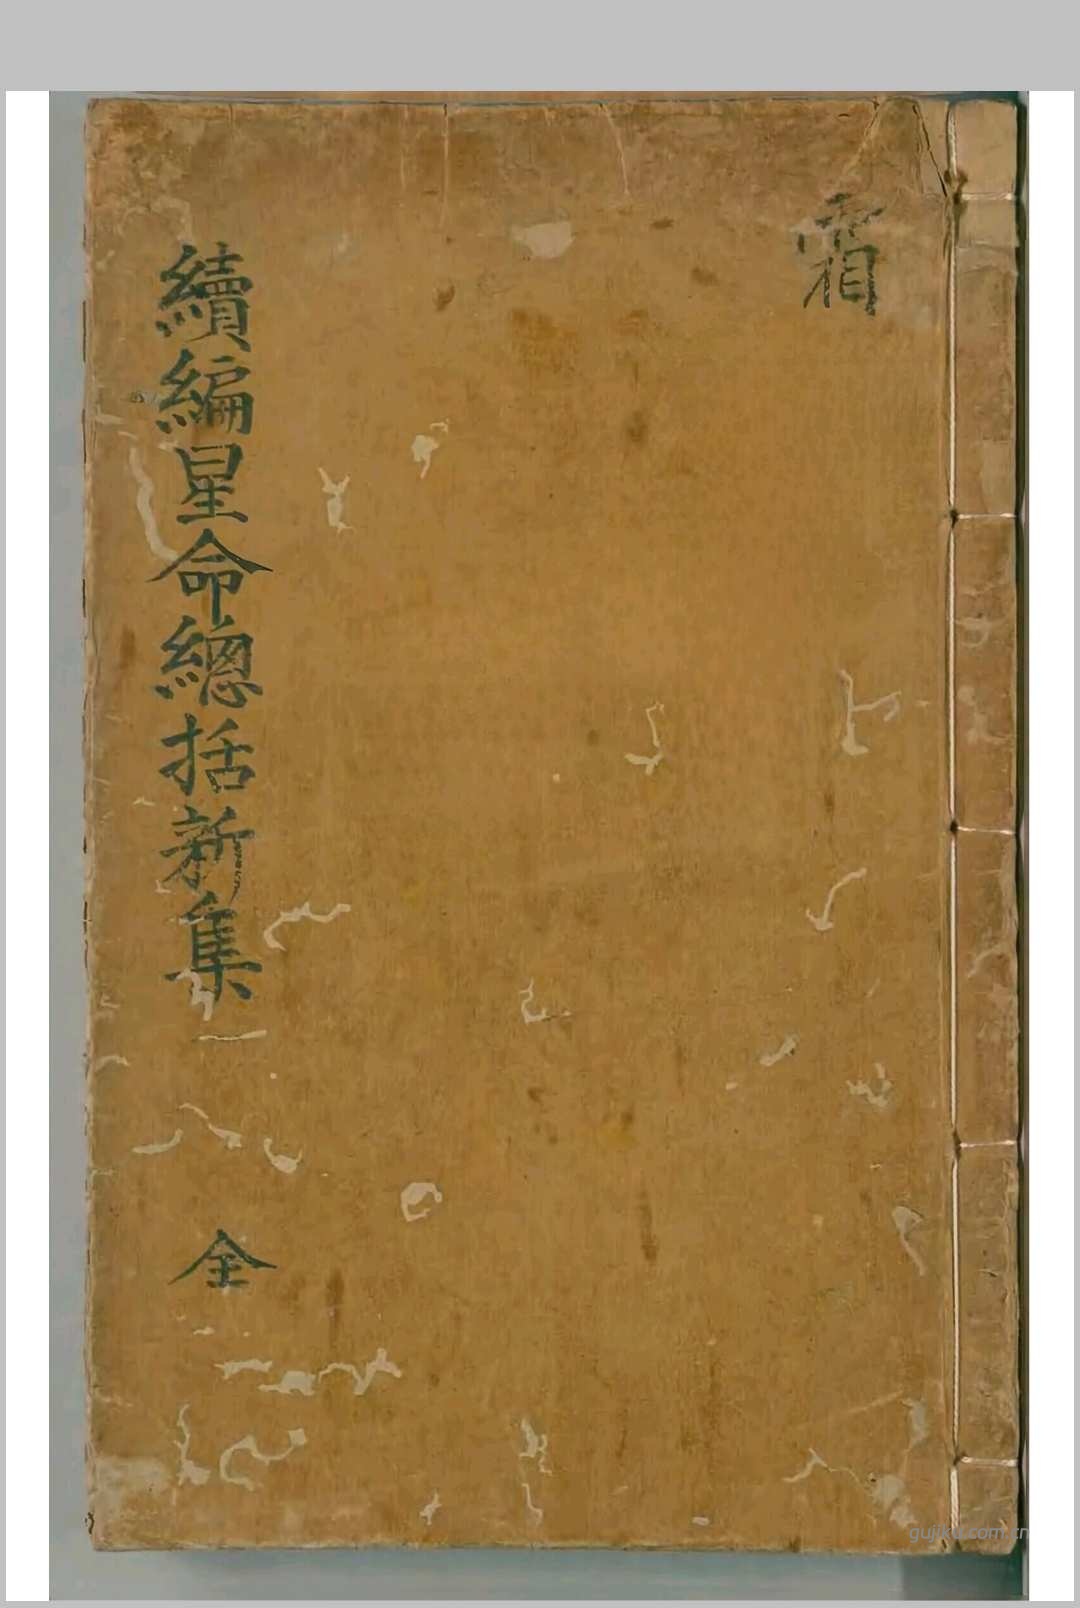 霜
續編星命總括新集
全
gujika.com.cn